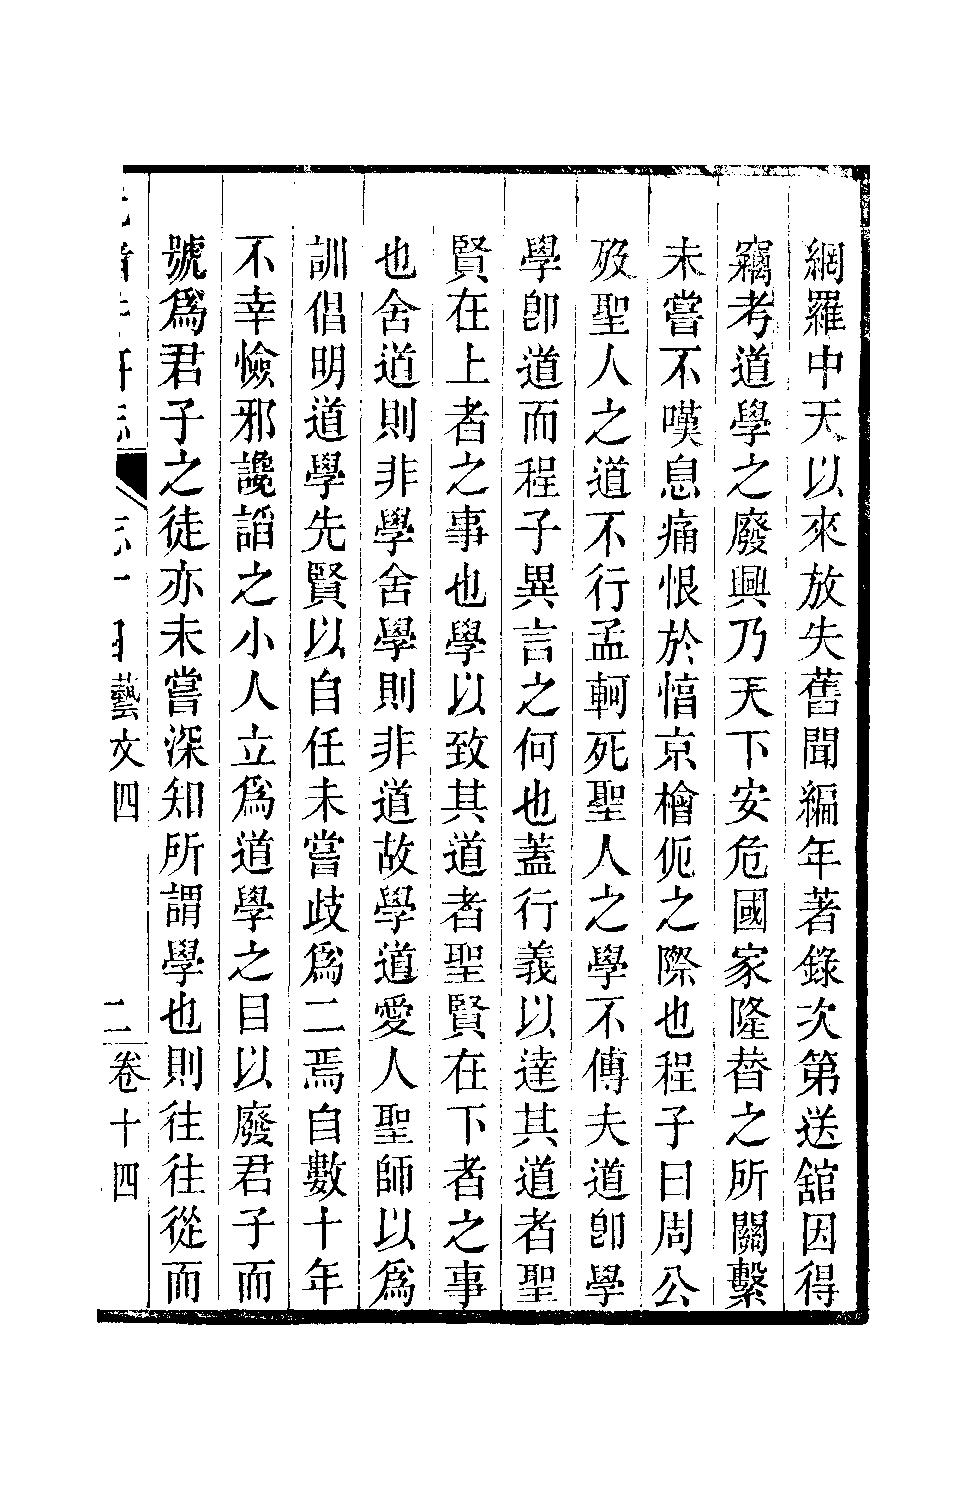 網羅中天以來放失舊聞編年著錄次第送舘因得
竊考道學之廢興乃天下安危國家隆替之所關繫
未嘗不嘆息痛恨於惇京檜侂之際也程子曰周公
歿聖人之道不行孟軻死聖人之學不傳夫道卽學
學卽道而程子異言之何也蓋行義以達其道者聖
賢在上者之事也學以致其道者聖賢在下者之事
也舍道則非學舍學則非道故學道愛人聖師以爲
訓倡明道學先賢以自任未嘗歧爲二焉自數十年
不幸憸邪讒謟之小人立爲道學之目以廢君子而
號爲君子之徒亦未嘗深知所謂學也則往往從而
藝文四 二 卷十四